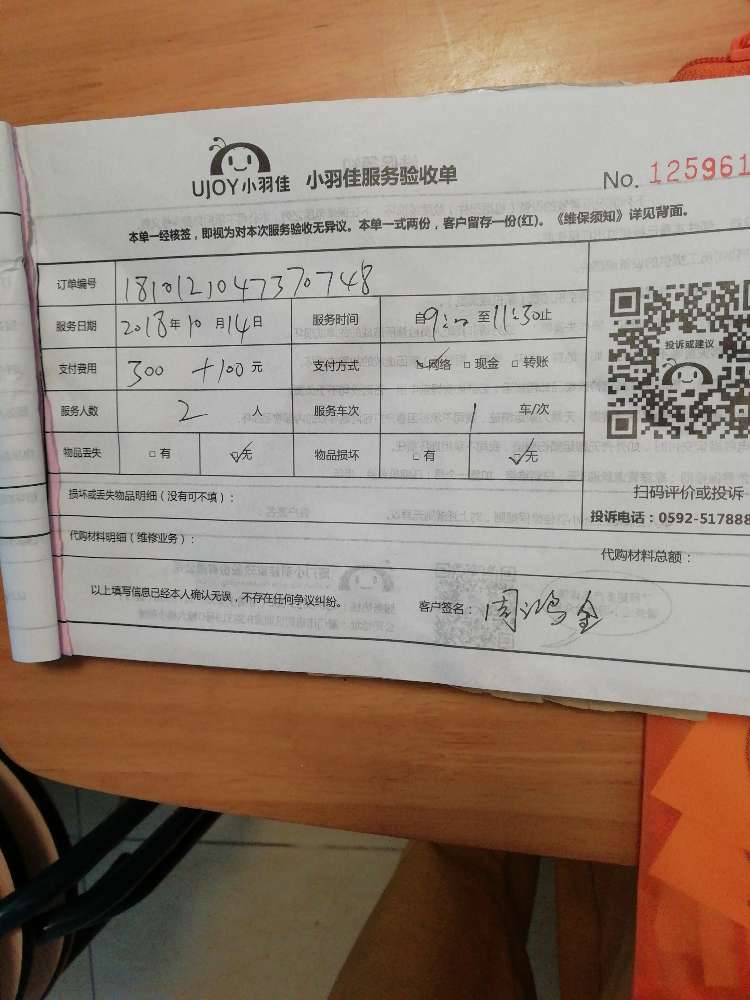 UJOY小羽佳 小羽佳服务验收单 No. 125961
本单一经核签，即视为对本次服务验收无异议。本单一式两份，客户留存一份(红)。《维保须知》详见背面。
订单编号 1810121047370748
服务日期 2018年10月14日 服务时间 自9:00至11:30止
支付费用 300 +100元 支付方式 ☑网络 □现金 □转账
服务人数 2 人 服务车次 1 车/次
物品丢失 □有 ☑无 物品损坏 □有 ☑无
投诉或建议
损坏或丢失物品明细（没有可不填）：
扫码评价或投诉
投诉电话：0592-517888
代购材料明细（维修业务）：
代购材料总额：
以上填写信息已经本人确认无误，不存在任何争议纠纷。 客户签名：周鸿金